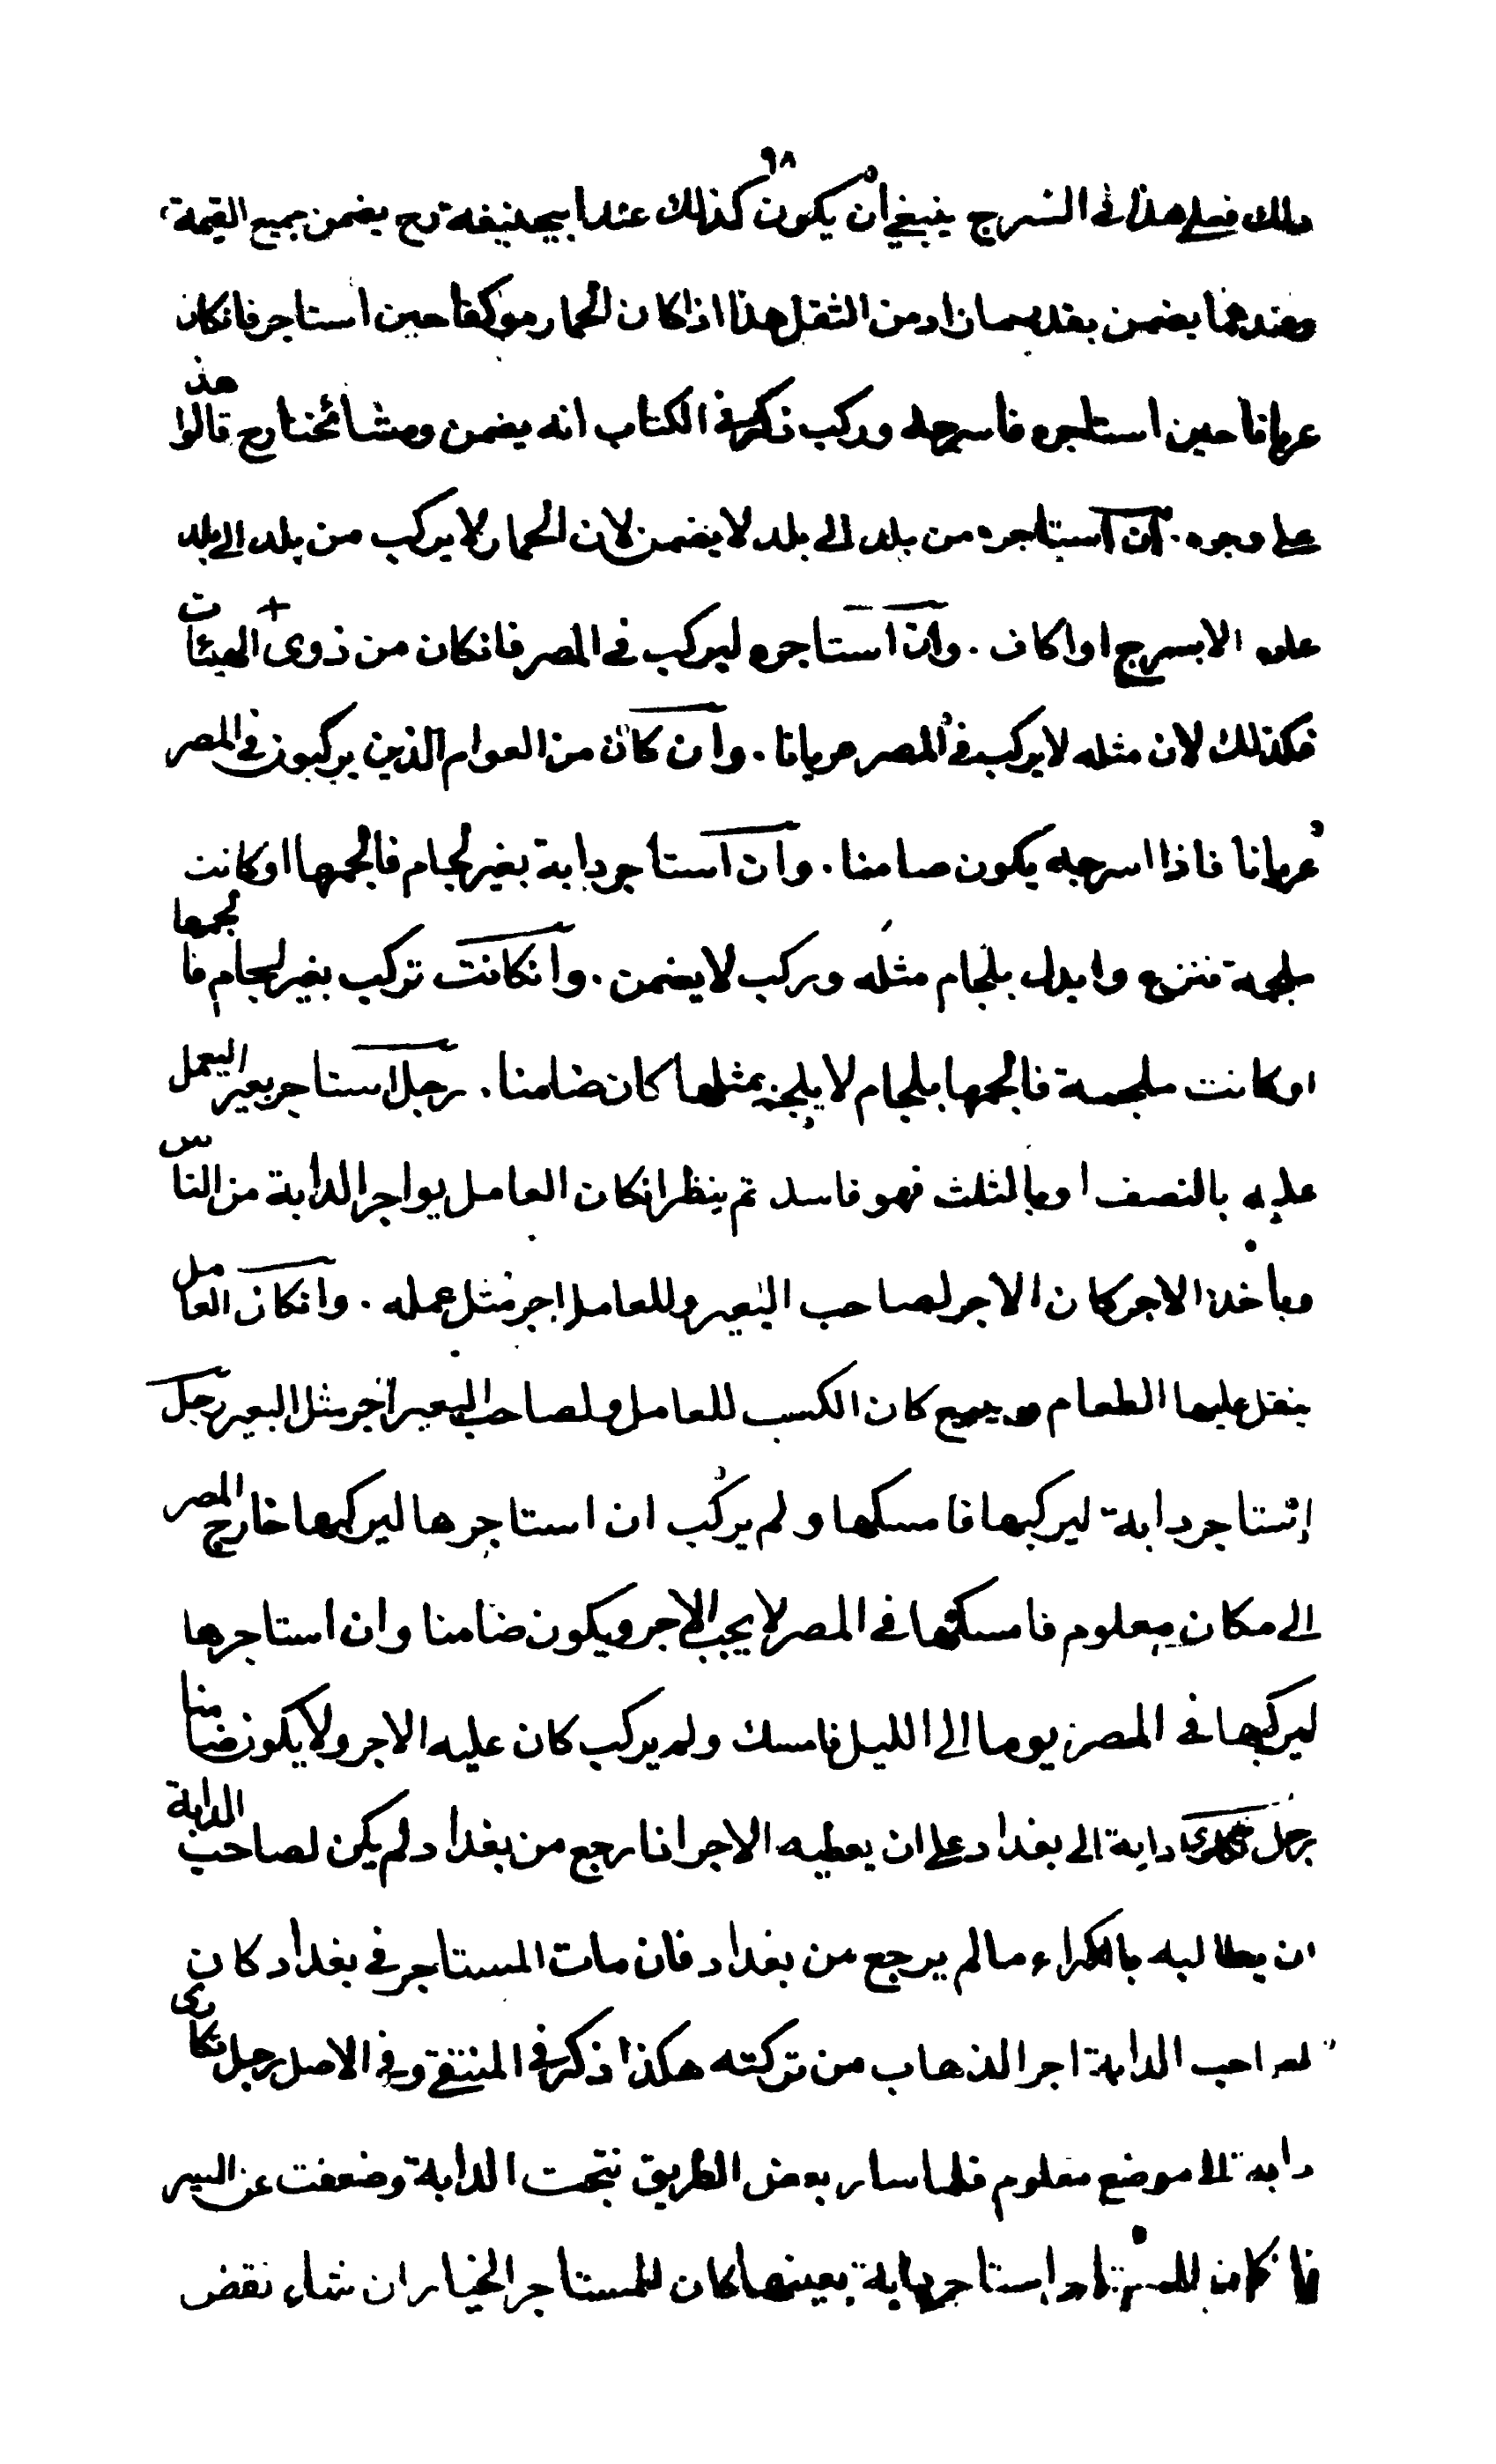 ٦٨
ذلك فعلى هذا فى السرج ينبغي أن يكون كذلك عند ابيحنيفة رح يضمن جميع القيمة
وعندهما يضمن بقدر ما زاد من الثقل هذا اذا كان الحمار موكفا حين استاجر فانكان
عريانا حين استاجره فاسرجه وركب ذكر في الكتاب انه يضمن ومشائخنا رح قالوا هذ
على وجوه. ان استاجره من بلد الى بلد لا يضمن لان الحمار لا يركب من بلد الى بلد
عليه الا بسرج او اكاف. وان استاجره ليركب في المصر فانكان من ذوى الهيئات
فكذلك لان مثله لا يركب في المصر عريانا. وان كان من العوام الذين يركبون في المصر
عريانا فاذا اسرجه يكون ضامنا. وان استاجر دابة بغير لجام فالجمها او كانت
ملجمة فنزع وابدل بلجام مثله وركب لا يضمن. وانكانت تركب بغير لجام فالجمها
او كانت ملجمة فالجمها بلجام لا يلجم بمثلها كان ضامنا. رجل استاجر بعير اليعمل
عليه بالنصف او بالثلث فهو فاسد ثم ينظر انكان العامل يواجر الدابة من الناس
وياخذ الاجر كان الاجر لصاحب البعير وللعامل اجر مثل عمله. وانكان العامل
ينقل عليها الطعام ويبيع كان الكسب للعامل ولصاحب البعير اجر مثل البعير رجل
استاجر دابة ليركبها فامسكها ولم يركب ان استاجرها ليركبها خارج المصر
الى مكان معلوم فامسكها في المصر لا يجب الاجر ويكون ضامنا وان استاجرها
ليركبها في المصر يوما الى الليل فامسك ولم يركب كان عليه الاجر ولا يكون ضامنا
رجل تكارى دابة الى بغداد على ان يعطيه الاجر اذا رجع من بغداد لم يكن لصاحب الدابة
ان يطالبه بالكراء ما لم يرجع من بغداد فان مات المستاجر في بغداد كان
لصاحب الدابة اجر الذهاب من تركته هكذا ذكر في المنتقى وفي الاصل رجل تكارى
دابة الى موضع معلوم فلما سار بعض الطريق نتجت الدابة وضعفت عن السير
فانكان المستاجر استاجر دابة بعينها كان للمستاجر الخيار ان شاء نقض